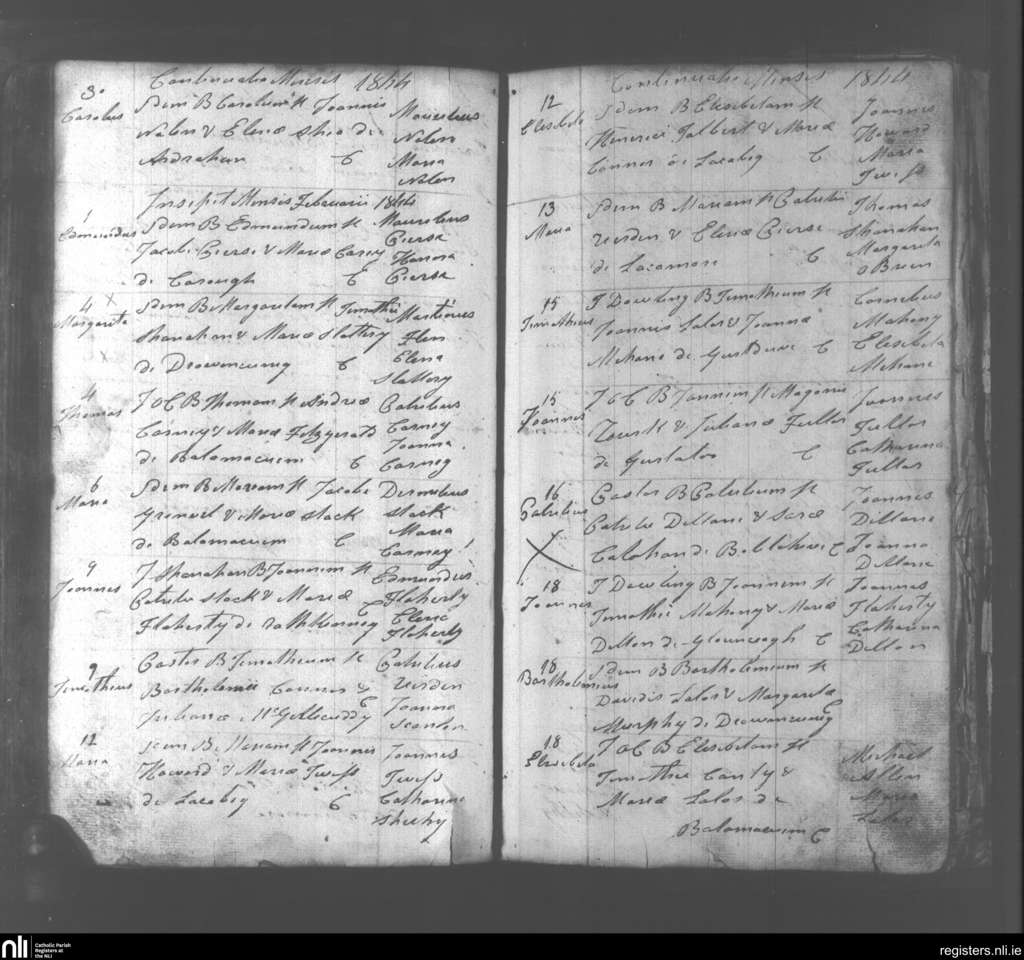 Continuatio Mensis 1844
3
Carolus
Idem B Carolum ft Joannis
Nolen & Elenæ Shea de
Ardrahan C
Mauritius
Nolen
Maria
Nolen
Insipit Mensis Februarii 1844
1
Edmundus
Idem B Edmundum ft
Jacobi Pierse & Mariæ Carney
de
C
Mauritius
Pierse
Honora
Pierse
4 X
Margarita
X
Idem B Margaritam ft Timothii
Shanahan & Mariæ Slattery
de C
Martinus
Elena
Slattery
4
Thomas
J O C B Thomam ft Andreæ
Carney & Mariæ Fitzgerald
de Balamacuem C
Patritius
Carney
Joanna
Carney
6
Maria
Idem B Mariam ft Jacobi
& Mariæ Stack
de Balamacuem C
Stack
Maria
Carney
9
Joannes
J Shanahan B Joannem ft
Patritii Stack & Mariæ C
Flaherty de
Edmundus
Flaherty
Elena
Flaherty
9
Timotheus
Pastor B Timotheum ft
Bartholomii Connor & C
Julianæ McGillicuddy
Patritius
Joanna
Scanlon
12
Maria
Idem B Mariam ft Joannis
Howard & Mariæ Twiss
de Lacabig C
Joannes
Twiss
Catharina
Sheehy
Continuatio Mensis 1844
12
Elisabeta
Idem B Elisabetam ft
Henerici Talbert & Mariæ
Connor de Lacabig C
Joannes
Howard
Maria
Twiss
13
Maria
Idem B Mariam ft Patritii
& Elenæ Pierse
de Lacamore C
Thomas
Shanahan
Margarita
O Brien
15
Timotheus
J Dowling B Timotheum ft
Joannis Lalor & Joannæ
Mehane de C
Cornelius
Mahony
Elisabeta
Mehane
15
Joannes
J O C B Joannem ft
& Julianæ Fuller
de C
Joannes
Fuller
Catharina
Fuller
16
Patritius
X
Pastor B Patritium ft
Patritii Dillane & Saræ
Calahan de C
Joannes
Dillane
Joanna
Dillane
18
Joannes
J Dowling B Joannem ft
Timothii Mahony & Mariæ
Dillon de C
Joannes
Flaherty
Catharina
Dillon
18
Bartholomeus
Idem B Bartholomeum ft
Davidis Lalor & Margaritæ
Murphy de C
18
Elisabeta
J O C B Elisabetam ft
Timothii Canty &
Mariæ Lalor de
Balamacuem C
Michael
Allen
Maria
Lalor
nli
Catholic Parish
Registers at
the NLI
registers.nli.ie